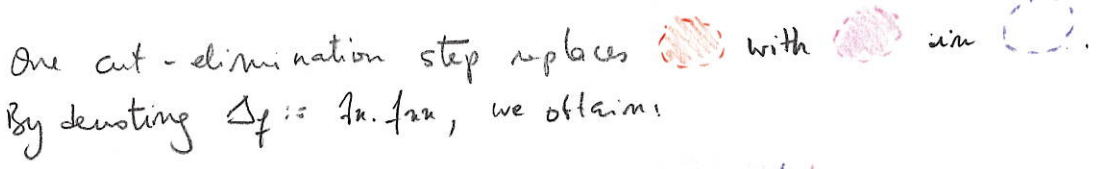 One cut-elimination step replaces with in .
By denoting Δf := λx. fxx, we obtain: